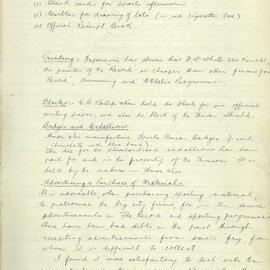 (1) Blank cards for sports afternoon
(2) Marbles for drawing of lots (in red cigarette box)
(3) Official Receipt Book
Printing: Experience has shown that D. W. White, Kent St,
the printer of the Record is cheaper than other firms for
Record, Swimming and Athletic Programmes.
Blocks: hold the block for our official
writing paper, and also the block of the Union Shield.
Badges and Medallions
Amor also manufacture Sports Union Badges (each
chocolate with blue band)
The die for the medallion has been
paid for and is the property of the Union. It is
held by the makers — Amor also
Advertising & Purchase of Materials
It is advisable when purchasing sporting material,
to patronise the big city firms, for in this secure
advertisements in The Record and sporting programmes
There have been bad debts in the past through
accepting advertisements from small fry, from
whom it is difficult to collect
I found it more satisfactory to deal with the